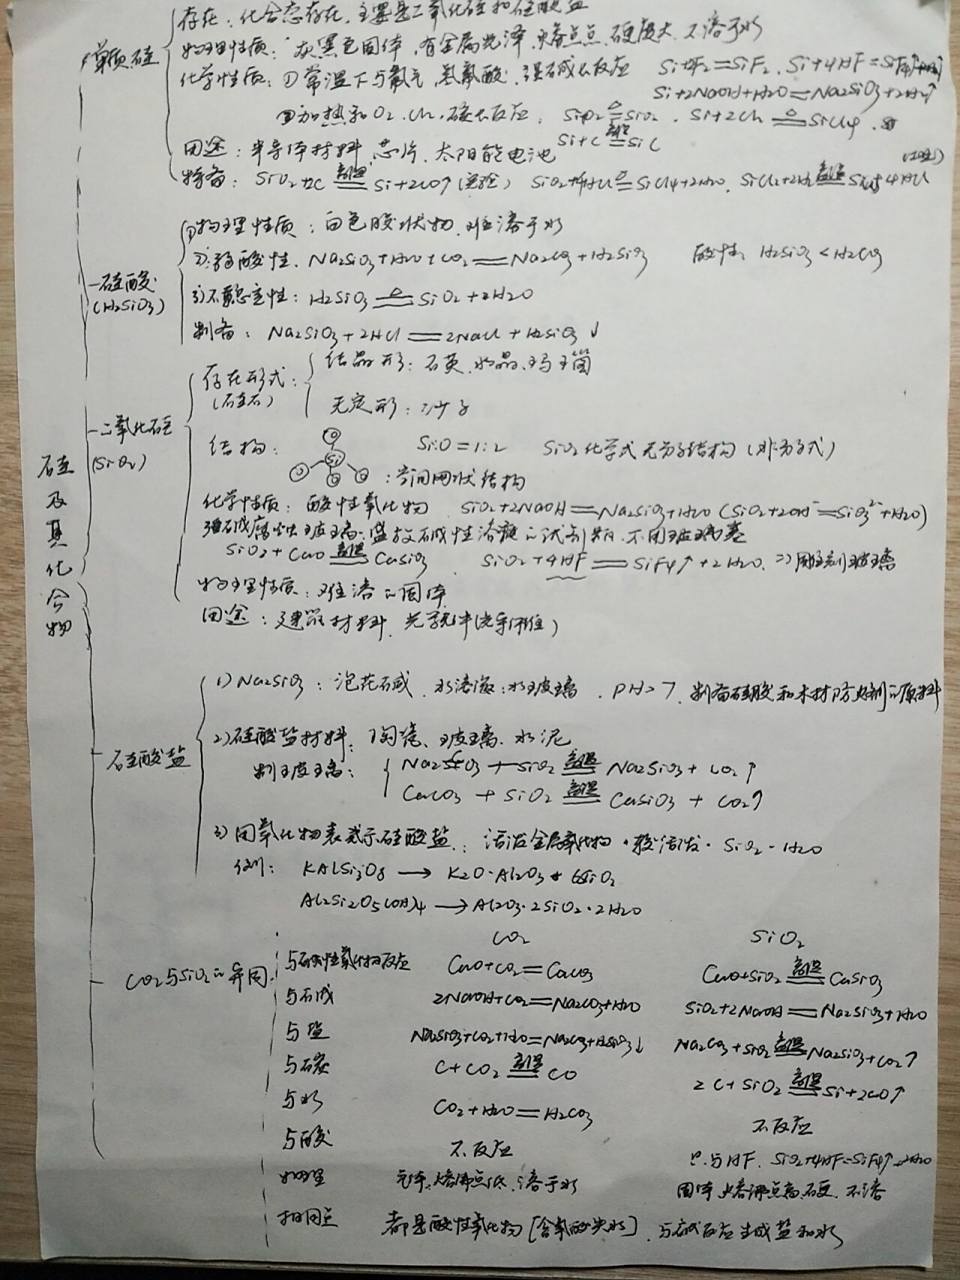 硅及其化合物
单质硅
存在：化合态存在，主要是二氧化硅和硅酸盐
物理性质：灰黑色固体，有金属光泽，硬度大，不溶于水
化学性质：①常温下与氟气，氢氟酸，强碱反应 Si+2F2=SiF4，Si+4HF=SiF4↑
Si+2NaOH+H2O=Na2SiO3+2H2↑
②加热和O2，Cl2，碳反应，Si+O2=SiO2，Si+2Cl2=SiCl4
Si+C 高温 SiC
用途：半导体材料，芯片，太阳能电池
制备：SiO2+2C 高温 Si+2CO↑
硅酸
(H2SiO3)
1)物理性质：白色胶状物，难溶于水
2)弱酸性，Na2SiO3+H2O+CO2=Na2CO3+H2SiO3 酸性：H2SiO3<H2CO3
3)不稳定性：H2SiO3 △ SiO2+H2O
制备：Na2SiO3+2HCl=2NaCl+H2SiO3↓
二氧化硅
(SiO2)
存在形式：
(硅石)
结晶形：石英，水晶，玛瑙
无定形：沙子
结构：
O
Si
O O O
：空间网状结构
Si:O=1:2 SiO2化学式无分子结构(非分子式)
化学性质：酸性氧化物 SiO2+2NaOH=Na2SiO3+H2O (SiO2+2OH⁻=SiO3²⁻+H2O)
强碱腐蚀玻璃：盛放碱性溶液的试剂瓶不用玻璃塞
SiO2+CaO 高温 CaSiO3 SiO2+4HF=SiF4↑+2H2O
物理性质：难溶的固体
用途：建筑材料，光学
硅酸盐
1)Na2SiO3：泡花碱，水溶液：水玻璃，PH>7，制备硅胶和木材防火剂的原料
2)硅酸盐材料：陶瓷、玻璃、水泥
制玻璃：
Na2CO3+SiO2 高温 Na2SiO3+CO2↑
CaCO3+SiO2 高温 CaSiO3+CO2↑
3)用氧化物表示硅酸盐：活泼金属氧化物·较活泼·SiO2·H2O
例：KAlSi3O8→K2O·Al2O3·6SiO2
Al2Si2O5(OH)4→Al2O3·2SiO2·2H2O
CO2与SiO2的异同
CO2 SiO2
与碱性氧化物反应 CaO+CO2=CaCO3 CaO+SiO2 高温 CaSiO3
与碱 2NaOH+CO2=Na2CO3+H2O SiO2+2NaOH=Na2SiO3+H2O
与盐 Na2SiO3+CO2+H2O=Na2CO3+H2SiO3↓ Na2CO3+SiO2 高温 Na2SiO3+CO2↑
与碳 C+CO2 高温 CO 2C+SiO2 高温 Si+2CO↑
与水 CO2+H2O=H2CO3 不反应
与酸 不反应 只与HF，SiO2+4HF=SiF4↑+2H2O
物理 气体，熔沸点低，溶于水 固体，熔沸点高，硬，不溶
相同点 都是酸性氧化物[含氧酸失水]，与碱反应生成盐和水